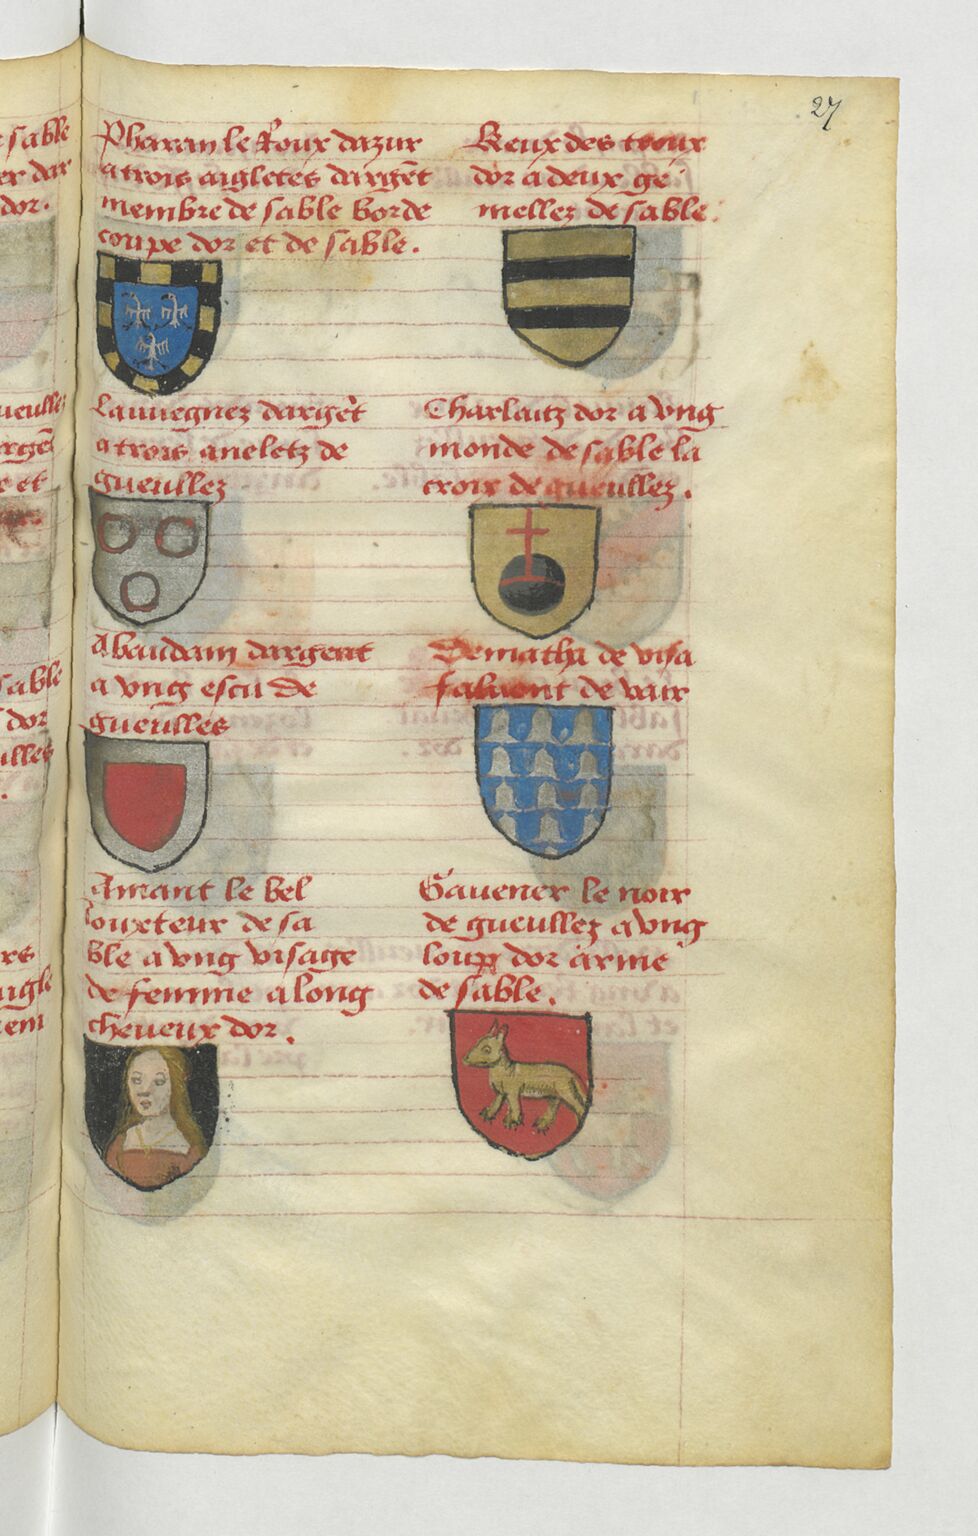 27
Pharan le Roux dazur
a trois aigletes dargēt
membre de sable borde
coupe dor et de sable.
Keux des troux
dor a deux ge
mellez de sable.
Lauuegnez dargēt
a trois aneletz de
gueullez
Charlaitz dor a vng
monde de sable la
croix de gueullez.
Abaudam dargent
a vng escu de
gueulles
de visa
de vair
Amant le bel
Iouxteur de sa
ble a vng visage
de femme a long
cheueux dor.
Gauener le noir
de gueullez a vng
loup dor arme
de sable.
sable
dor.